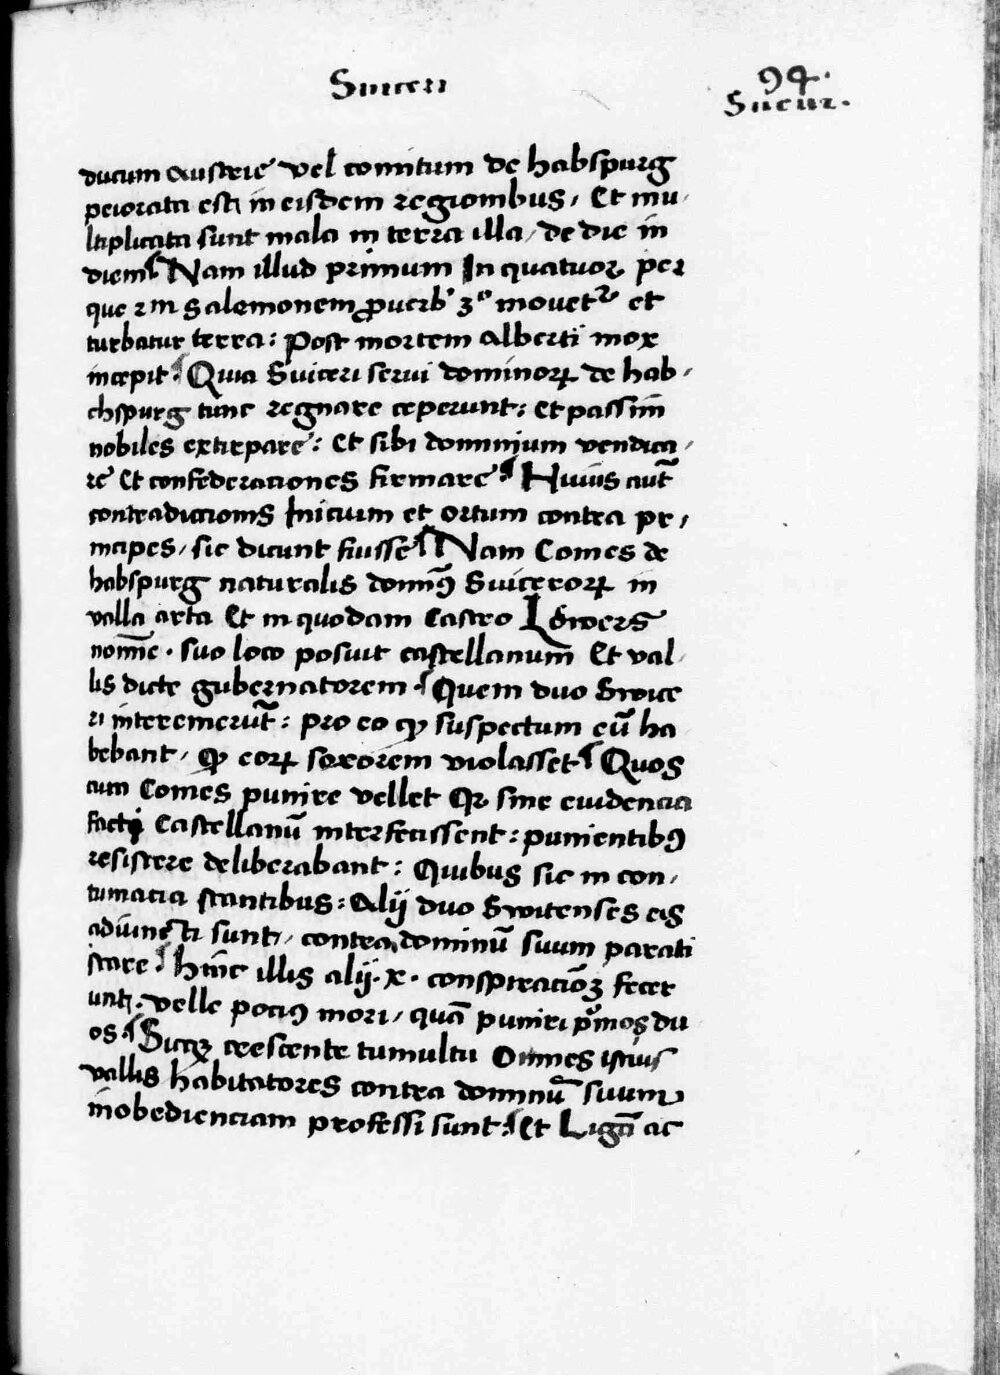 Suiceri
94.
Suicer.
ducum austrie vel comitum de habspurg
peiorata est in eisdem regionibus, Et mu-
ltiplicata sunt mala in terra illa, de die in
diem. Nam illud primum In quatuor per
que 2m Salemonem ꝓverb' 3º movetur et
turbatur terra: Post mortem alberti mox
incepit. Quia Suiceri servi dominoꝝ de hab-
chspurg tunc regnare ceperunt: Et passim
nobiles extirpare: Et sibi dominium vendica-
re Et confederaciones firmare. Huius aut̄
contradiccionis Inicium et ortum contra pr,
incipes, sic dicunt fuisse. Nam Comes de
habspurg naturalis domin9 Suiceroꝝ in
valla arta Et in quodam Castro Lowers
nomīe. suo loco posuit castellanum Et val-
lis dicte gubernatorem. Quem duo Swice
ri interemerūt: pro eo ꝙ suspectum eū ha
bebant, ꝙ eoꝝ sororem violasset. Quos
cum Comes punire vellet qr sine euidencia
facti Castellanū interfecissent: punientib9
resistere deliberabant: Quibus sic in con,
tumacia stantibus: alij duo Switenses eis
adiuncti sunt, contra dominū suum parati
stare. hinc illis alij. x. conspiraciōꝫ fecer
unt. velle poci9 mori, quā puniri p̄mos du
os. Sicqꝫ crescente tumultu Omnes istius
vallis habitatores contra dominū suum
inobedienciam professi sunt. Et Ligā ac